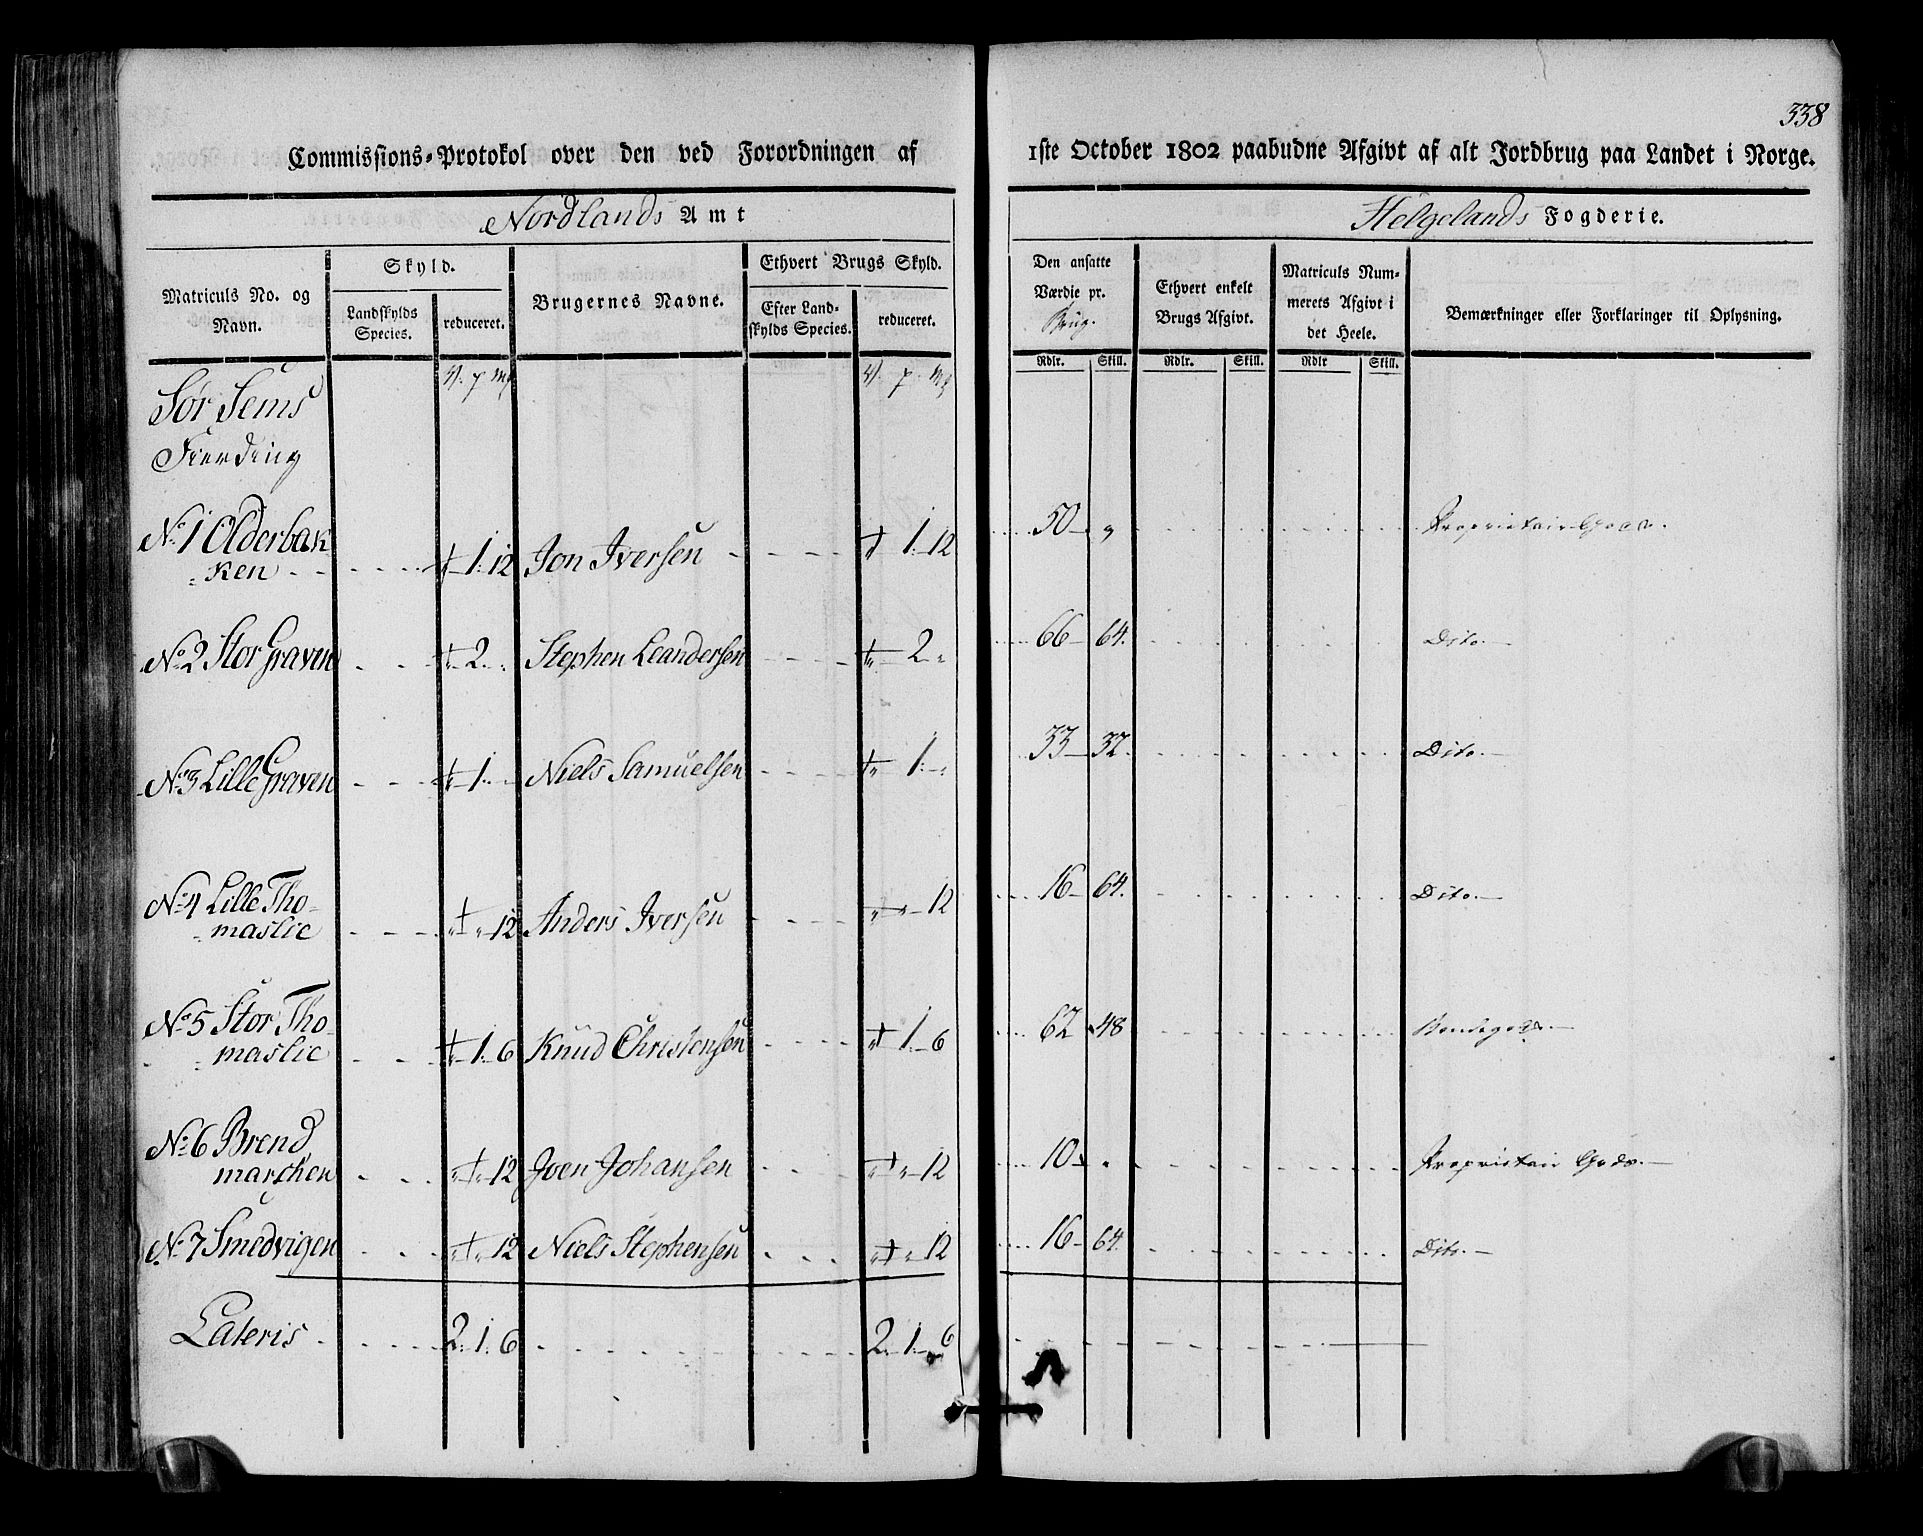 338
Commissions-Protokol over den ved Forordningen af 1ste October 1802 paabudne Afgivt af alt Jordbrug paa Landet i Norge.
Nordlands Amt
Helgelands Fogderie.
Matriculs No. og Navn.
Skyld.
Landskylds Species.
reduceret.
Brugernes Navne.
Ethvert Brugs Skyld.
Efter Landskylds Species.
reduceret.
Den ansatte Værdie pr. Brug.
Ethvert enkelt Brugs Afgivt.
Matriculs Nummerets Afgivt i det Heele.
Bemærkninger eller Forklaringer til Oplysning.
Rdlr. Skill. Rdlr. Skill. Rdlr Skill.
V. p. M V. p. M
Sør Sems
Fierding
No 1 Olderbak-
ken 1. 12 Jon Iversen 1. 12 50 „ Proprietair Gods.
No 2 Stor Graven 2. „ Stephen Leandersen 2 „ 66 64. Dito.
No 3 Lille Graven 1. „ Niels Samuelsen 1. „ 33 32. Dito.
No 4 Lille Tho-
maslie „ „ 12 Anders Iversen „ „ 12 16 64. Dito.
No 5 Stor Tho-
maslie 1. 6 Knud Christensen 1. 6 62 48 Bondegods.
No 6 Brend
marschen „ „ 12 Joen Johansen „ „ 12 10 „ Proprietair Gods.
No 7 Smedvigen „ „ 12 Niels Stephensen „ „ 12 16 64. Dito.
Lateris 2. 1. 6 2. 1. 6